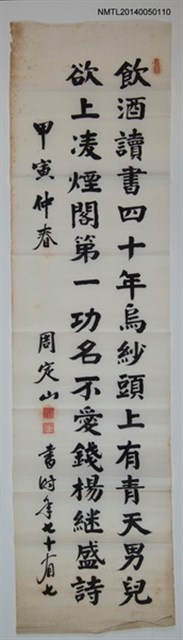 NMTL20140050110
飲酒讀書四十年烏紗頭上有青天男兒
欲上凌煙閣第一功名不愛錢楊繼盛詩
甲寅仲春
周定山
書時年七十有七